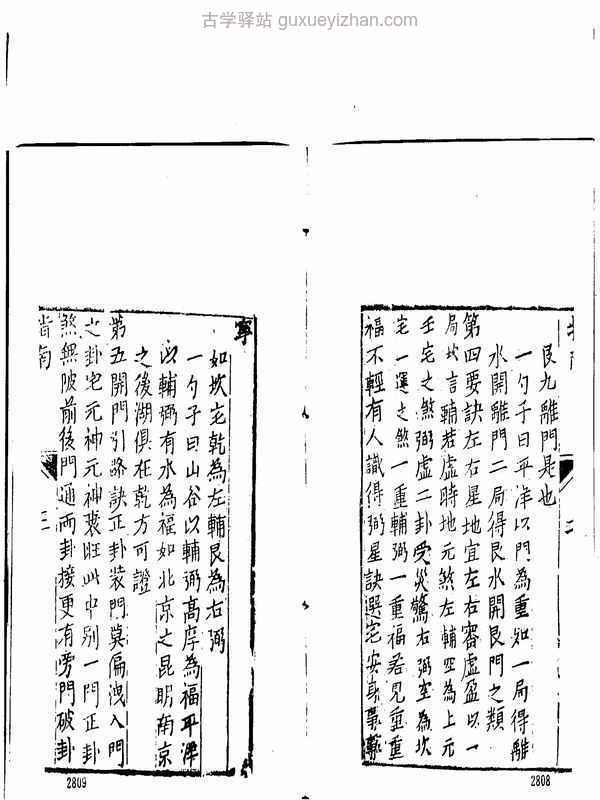 古学驿站 guxueyizhan.com
艮九離門是也
一勺子曰平洋以門為重如一局得離
水開離門二局得艮水開艮門之類
第四要訣左右星地宜左右審虛盈以一
局坎言輔若虛時地元煞左輔空為上元
壬宅之煞弼虛二卦受災驚右弼空為坎
宅一運之煞一重輔弼一重福若見重重
福不輕有人識得弼星訣選宅安身
二
2808
寧
如坎宅乾為左輔艮為右弼
一勺子曰山谷以輔弼高庠為福平洋
以輔弼有水為福如北京之昆明南京
之後湖俱在乾方可證
第五開門引路訣正卦裝門莫偏洩入門
之卦宅元神元神衰旺此中別一門正卦
煞無陂前後門通兩卦接更有旁門破卦
指南
三
2809